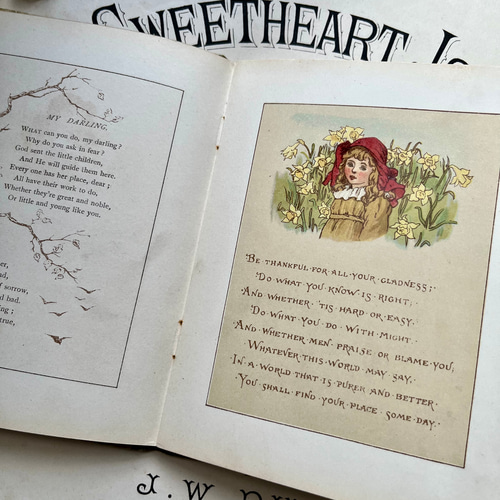 SWEETHEART
MY DARLING.
WHAT can you do, my darling?
Why do you ask in fear?
God sent the little children,
And He will guide them here.
Every one has her place, dear;
All have their work to do,
Whether they're great and noble,
Or little and young like you.
of sorrow,
bad.
"BE THANKFUL FOR ALL YOUR GLADNESS;
DO WHAT YOU KNOW IS RIGHT;
AND WHETHER 'TIS HARD OR EASY,
DO WHAT YOU DO WITH MIGHT.
AND WHETHER MEN PRAISE OR BLAME YOU,
WHATEVER THIS WORLD MAY SAY,
IN A WORLD THAT IS PURER AND BETTER
YOU SHALL FIND YOUR PLACE SOME DAY."
J. W.